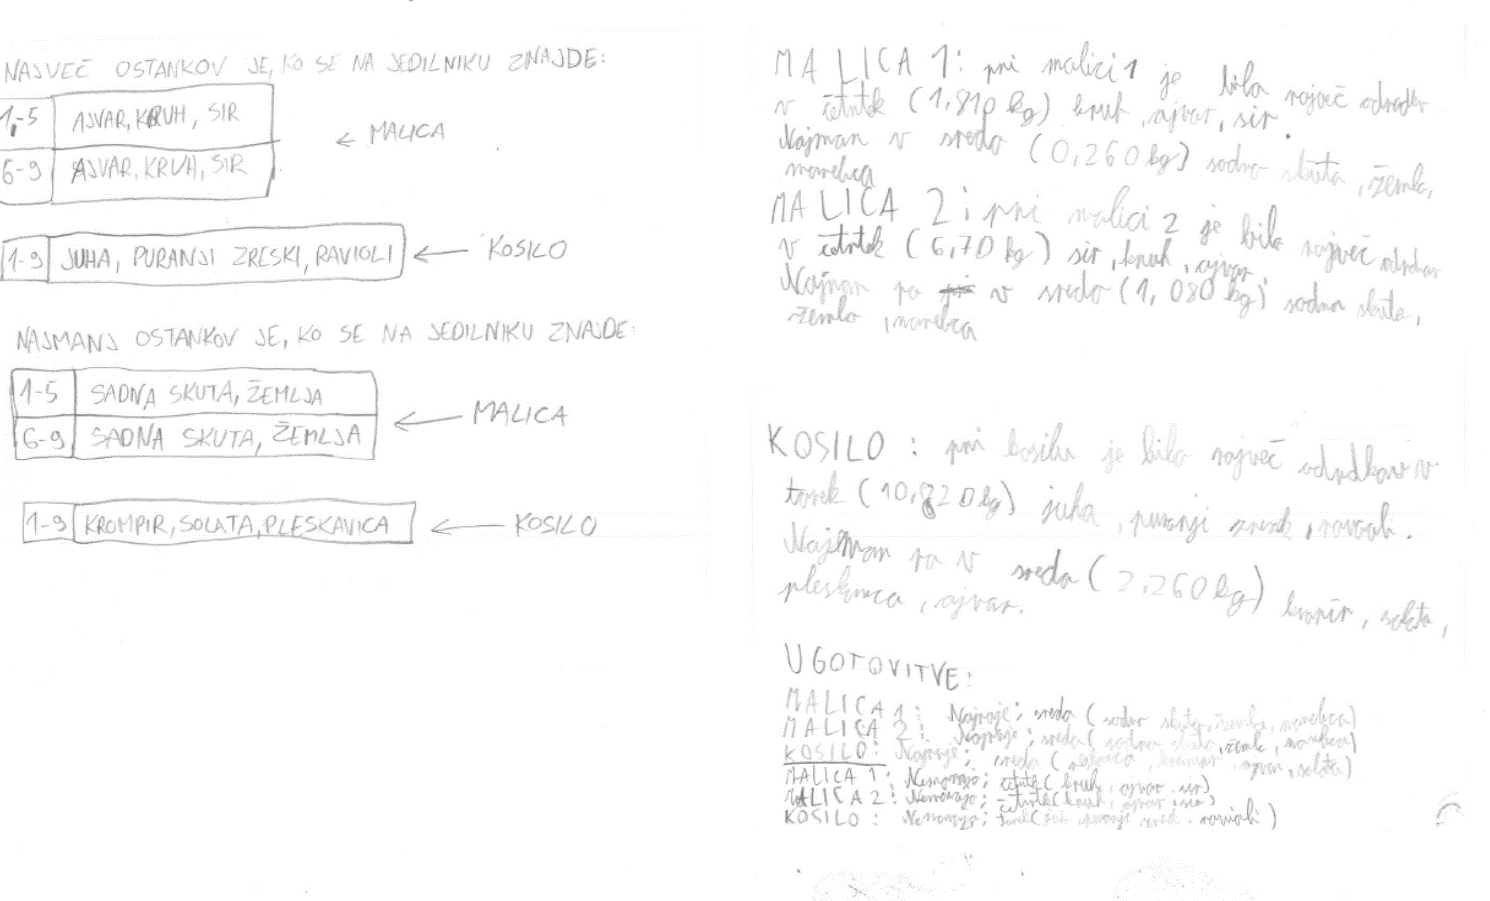 NAJVEČ OSTANKOV JE, KO SE NA JEDILNIKU ZNAJDE:
1-5 AJVAR, KRUH, SIR
← MALICA
6-9 AJVAR, KRUH, SIR
1-9 JUHA, PURANJI ZRESKI, RAVIOLI ← KOSILO
NAJMANJ OSTANKOV JE, KO SE NA JEDILNIKU ZNAJDE:
1-5 SADNA SKUTA, ŽEMLJA
← MALICA
6-9 SADNA SKUTA, ŽEMLJA
1-9 KROMPIR, SOLATA, PLESKAVICA ← KOSILO
MALICA 1: pri malici 1 je bilo največ
v četrtek (1,810 kg) kruh, ajvar, sir.
Najman v sredo (0,260 kg) sadna skuta, žemla,
marelica
MALICA 2: pri malici 2 je bilo največ
v četrtek (6,70 kg) sir, kruh, ajvar.
Najman pa v sredo (1,080 kg) sadna skuta,
žemla, marelica
KOSILO: pri kosilu je bilo največ odpadkov v
torek (10,820 kg) juha, puranji zrezek, ravioli.
Najman pa v sreda (2,260 kg) krompir, solata,
pleskavica, ajvar.
UGOTOVITVE:
MALICA 1: Najraje; sreda (sadna skuta, žemla, marelica)
MALICA 2: Najraje; sreda (sadna skuta, žemla, marelica)
KOSILO: Najraje; sreda (pleskavica, krompir, ajvar, solata)
MALICA 1: Nemarajo; četrtek (kruh, ajvar, sir)
MALICA 2: Nemarajo; četrtek (kruh, ajvar, sir)
KOSILO: Nemarajo; torek (juha, puranji zrezek, ravioli)